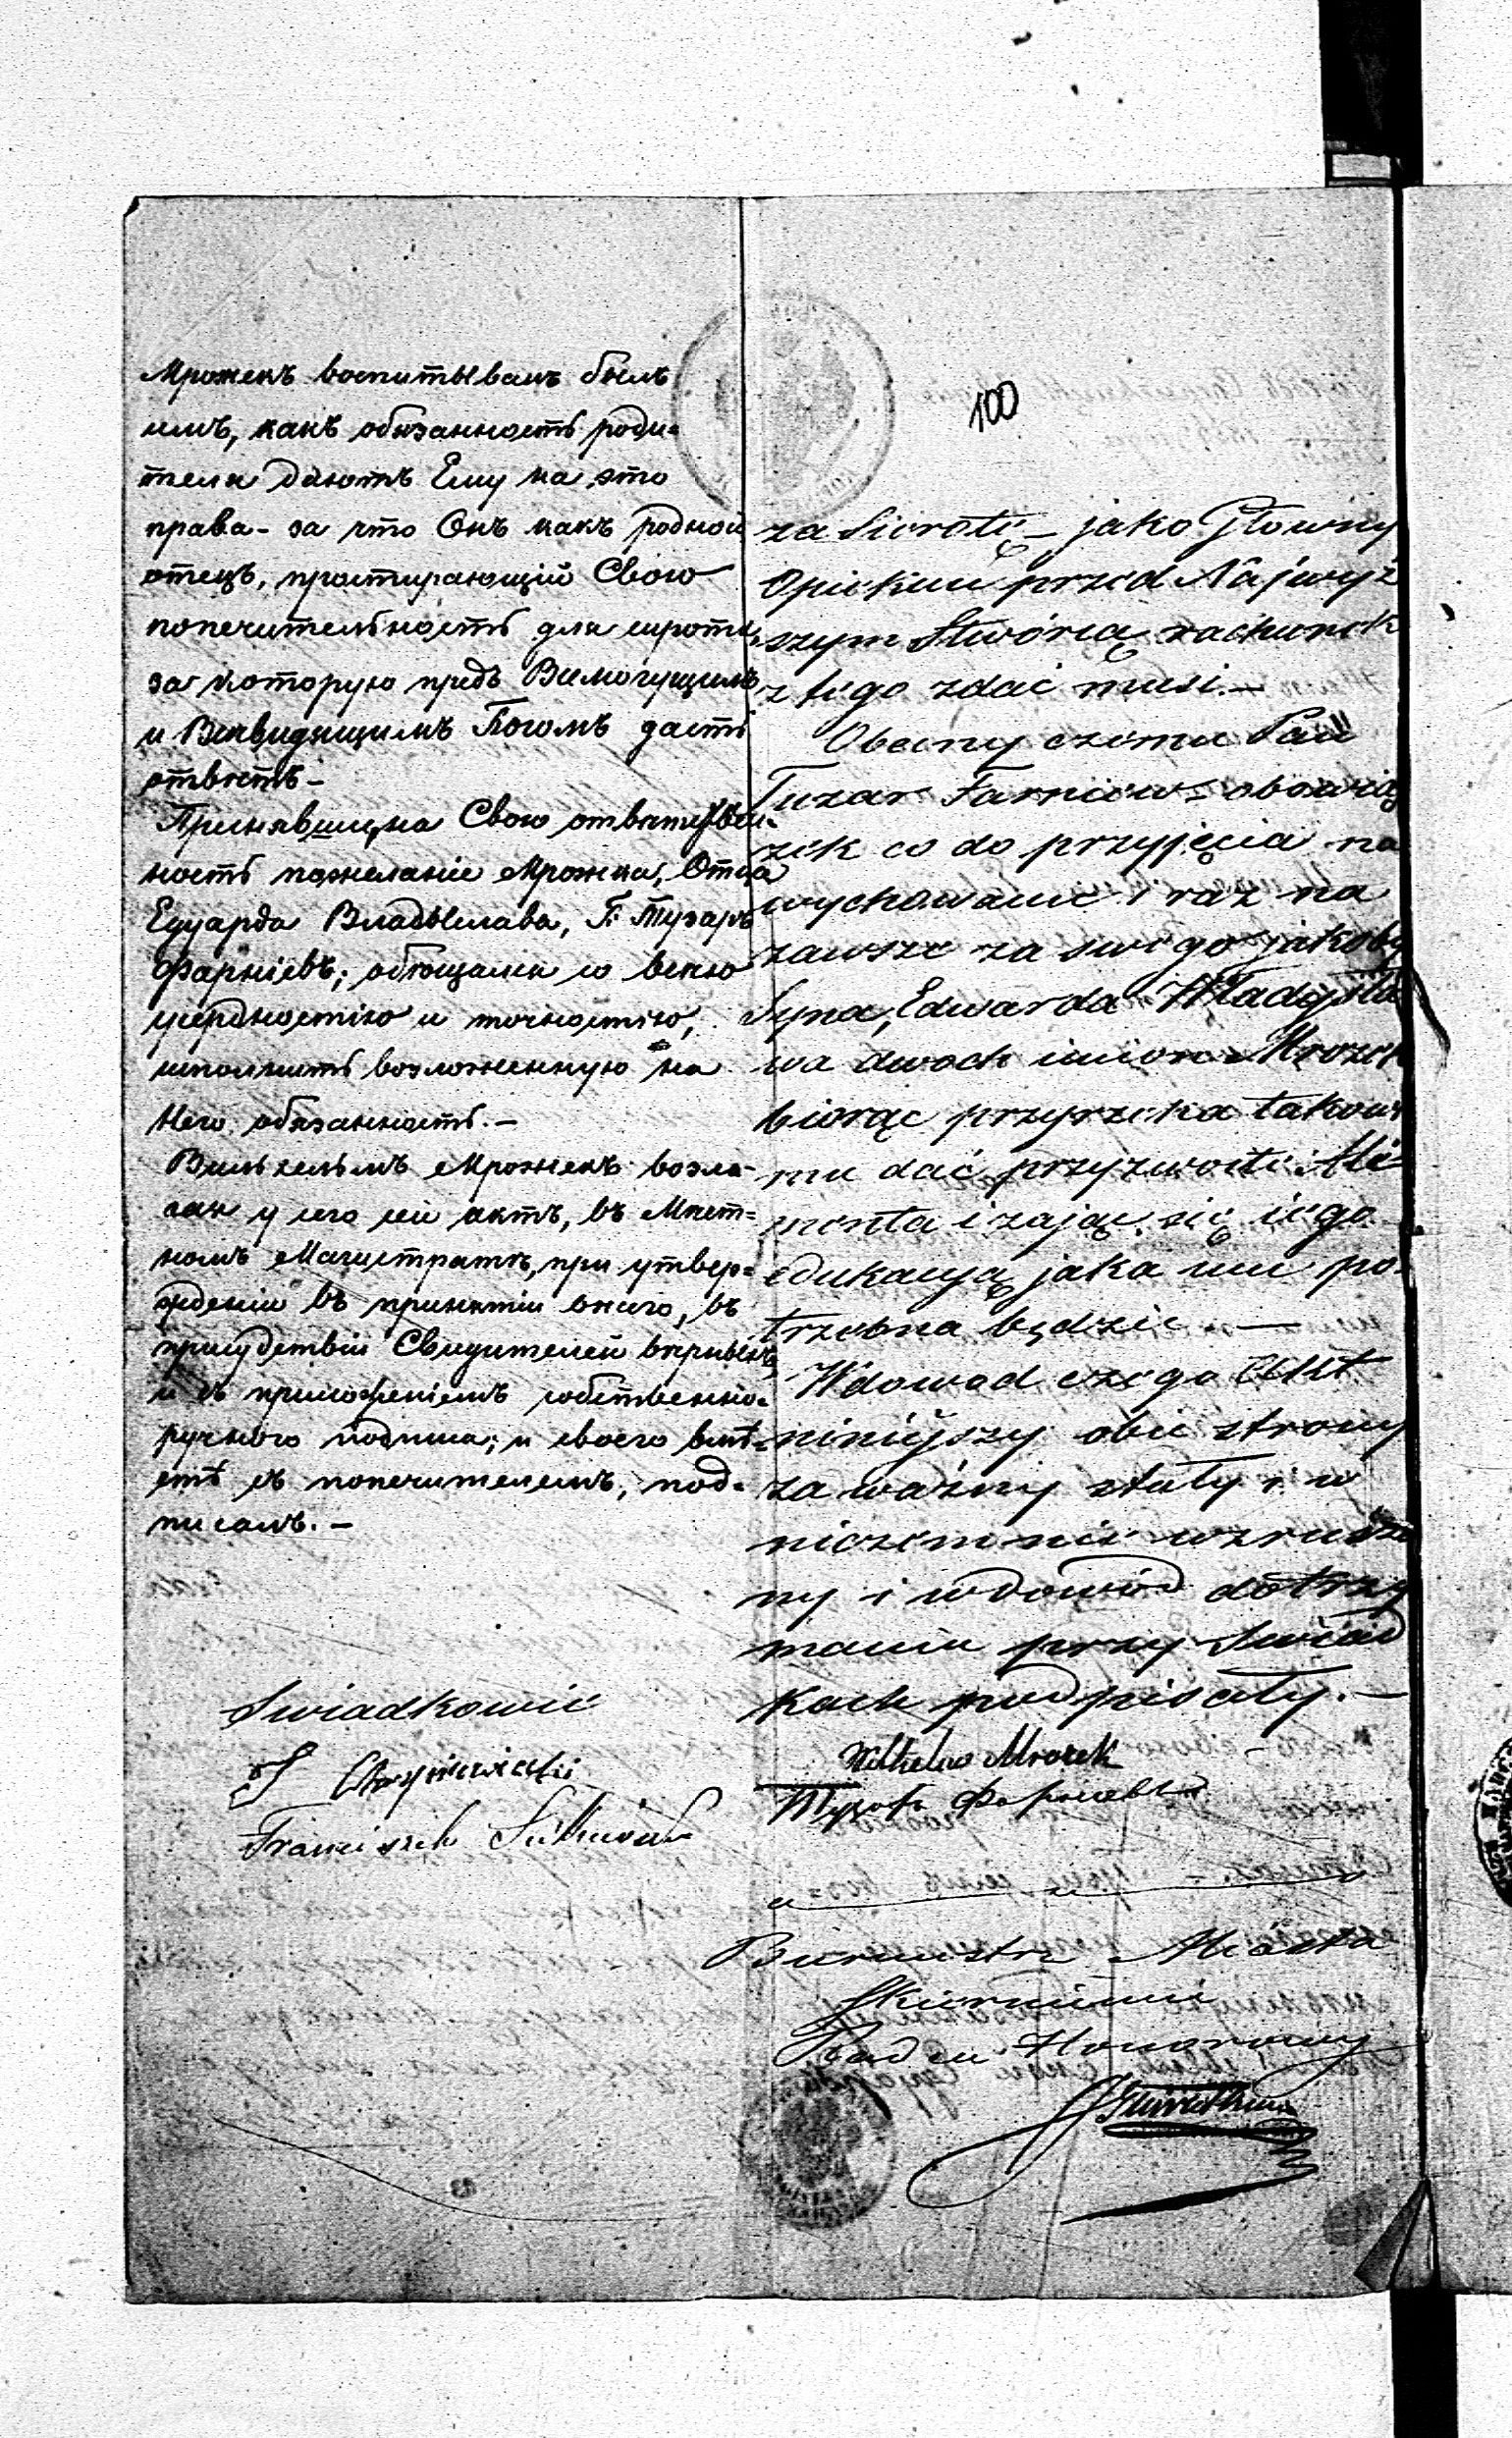 Мрожекъ воспитываемъ былъ
имъ, какъ обязанность роди=
теля даютъ Ему на это
права - за что Онъ какъ родной
отецъ, простирающій Свою
попечительность для сироты,
за которую предъ Всемогущимъ
и Всевидящимъ Богомъ дастъ
отвѣтъ -
Принявши, на Свою отвѣтствен=
ность пожеланіе Мрожка, Отца
Едуарда Владыслава, Г. Тузаръ
Фарніевъ; обѣщался со всею
усердностію и точностію,
исполнить возложенную на
Него обязанность. -
Вильгельмъ Мрожекъ возла-
гая у него сей актъ, въ Мѣст=
номъ Магистратѣ, при утвер=
жденіи въ принятіи онаго, въ
присудствіи Свидѣтелей вѣрныхъ,
и съ приложеніемъ собственно=
ручного подписа; и своего вмѣ=
стѣ съ попечителемъ, под=
писалъ. -
Swiadkowie
Franciszek
100
za Sierotę - jako Główny
Opiekun przed Najwyż
szym Stwórcą rachunek
z tego zdać musi. -
Obecny czemu Pan
Tuzar Farniew - obowiąz
zek co do przyjęcia na
wychowanie i raz na
zawsze za swego jakoby
Syna, Edwarda Władysła
wa dwoch imion Mrozek
biorąc przyrzeka takowe
mu dać przyzwoite Ali=
menta i zająć się iego
edukacyą jaka mu po=
trzebna będzie. -
W dowod czego Akt
niniejszy obie strony
za ważny stały i w
niczem nie wzrusza
ny i w dowód dotrzy
mania przy Swiad
kach podpisały. -
Wilhelm Mrozek
Тузаръ Фарніевъ
Burmistrz Miasta
Skierniewic
Radca Honorowy